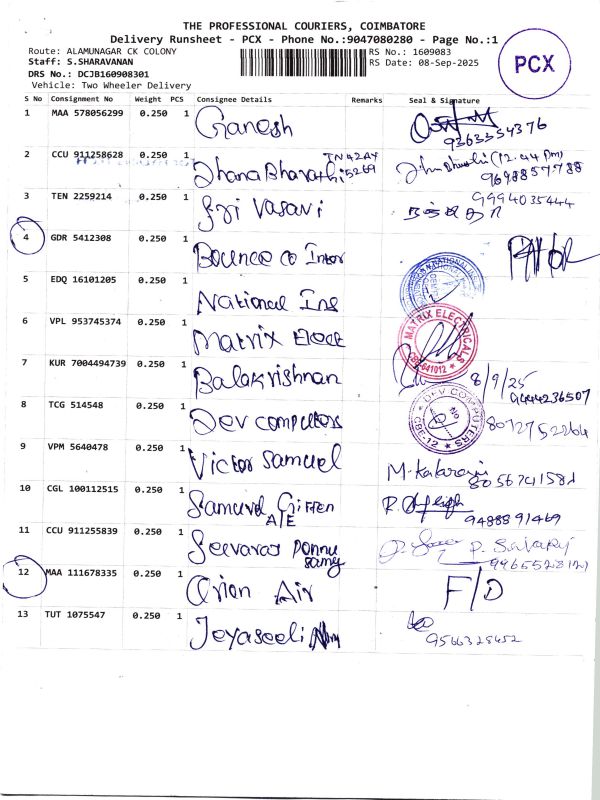 THE PROFESSIONAL COURIERS, COIMBATORE
Delivery Runsheet - PCX - Phone No.:9047080280 - Page No.:1
Route: ALAMUNAGAR CK COLONY
Staff: S.SHARAVANAN
DRS No.: DCJB160908301
Vehicle: Two Wheeler Delivery
RS No.: 1609083
RS Date: 08-Sep-2025
PCX
S No Consignment No Weight PCS Consignee Details Remarks Seal & Signature
1 MAA 578056299 0.250 1 Ganesh
9363554376
2 CCU 911258628 0.250 1 Dhana Bharathi TN42AY 5269 (12.44 Pm)
9698857788
3 TEN 2259214 0.250 1 Sri Vasavi 9994035444
4 GDR 5412308 0.250 1 Bounce co Inter
5 EDQ 16101205 0.250 1 National Ins
6 VPL 953745374 0.250 1 Matrix Elect MATRIX ELECTRICALS CBE-641012
7 KUR 7004494739 0.250 1 Balakrishnan 8/9/25
9444236507
8 TCG 514548 0.250 1 Dev computers DEV COMPUTERS CBE-12 8072752264
9 VPM 5640478 0.250 1 Victor Samuel
8056741581
10 CGL 100112515 0.250 1 Samuvel Giften A/E
9488891469
11 CCU 911255839 0.250 1 Seevaraj Ponnu samy
12 MAA 111678335 0.250 1 Orion Air F/D
13 TUT 1075547 0.250 1 Jeyaseeli
9566328452